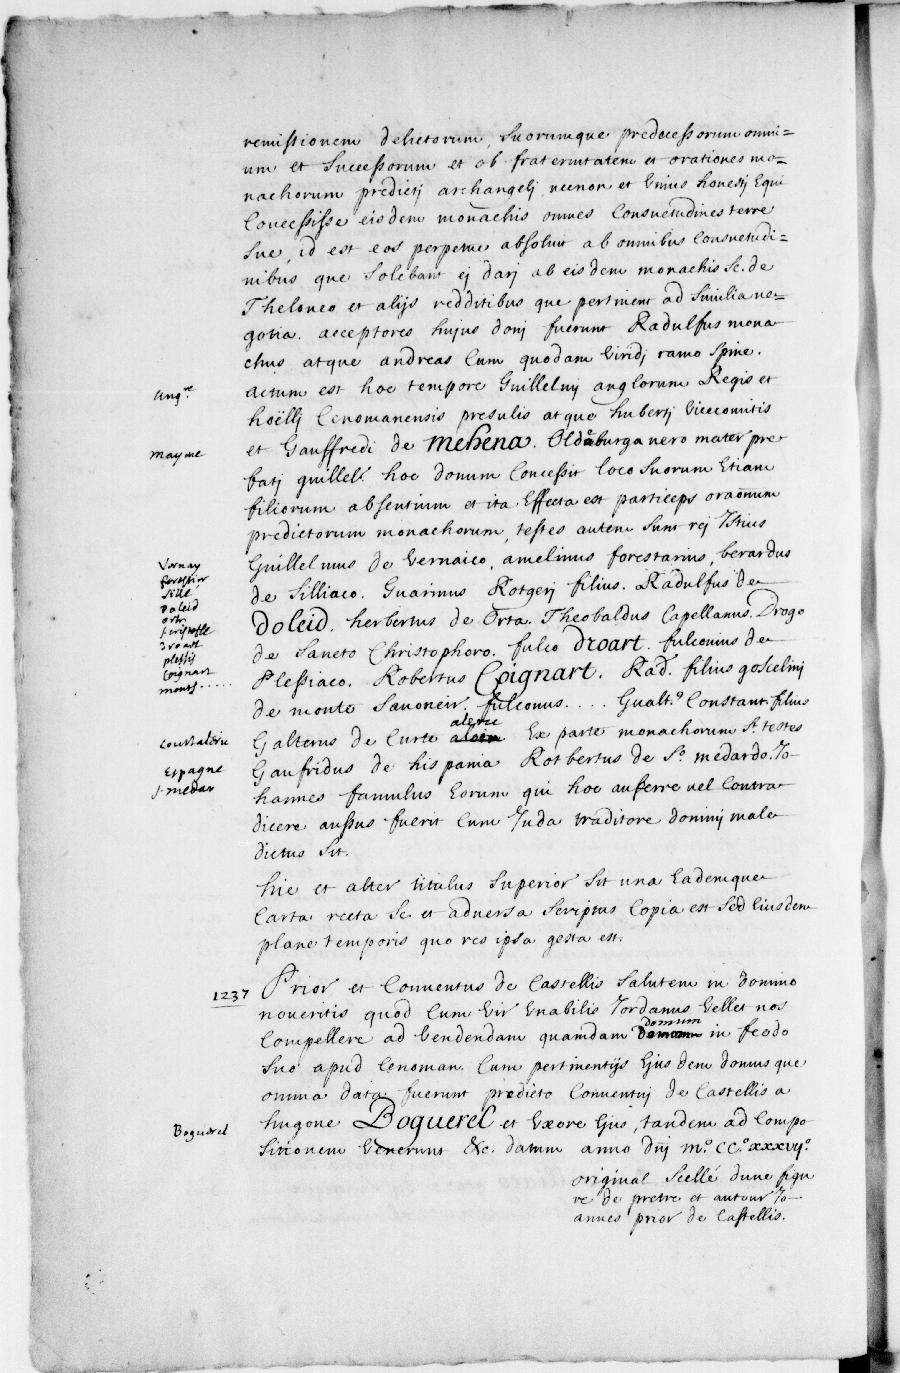 remissionem delictorum, suorumque predecessorum omni=
um et successorum et ob fraternitatem et orationes mo=
nachorum predictj archangelj necnon et Unius honestj Equi
Concessisse eisdem monachis omnes Consuetudines terre
sue, id est eos perpetue absoluit ab omnibus Consuetudi=
nibus que solebant ej darj ab eisdem monachis sc. de
Theloneo et alijs redditibus que pertinent ad similia ne=
gotia. acceptores hujus donj fuerunt Radulfus mona
chus atque andreas Cum quodam Viridj ramo spine.
Ang.re
actum est hoc tempore Guillelmj anglorum Regis et
hoëllj Cenomanensis presulis atque hubertj Vicecomitis
mayne
et Gauffredi de Mehena. Oldeburga vero mater pre
fatj guillelj. hoc donum Concessit loco suorum Etiam
filiorum absentium et ita Effecta est particeps oraõnum
predictorum monachorum, testes autem sunt rej Istius
Vernay
Guillelmus de Vernaico, amelinus forestarius, berardus
forestier
Sillé
de Silliaco. Guarinus Rotgerj filius. Radulfus de
Doleid
orte
Doleid. herbertus de Orta. Theobaldus Capellanus. Drogo
s. cristofle
droart
de Sancto Christophoro. fulco Droart. fulconius de
plessis
Coignart
Plessiaco. Robertus Coignart. Rad. filius goscelinj
monts.....
de monte Sauoneir. fulconus.... Gualt.o Constant. filius
Courtaleru
Galterus de Curte aloin aleru Ex parte monachorum st. testes
Espagne
Gaufridus de hispania Rotbertus de So. medardo. Jo-
s. medar
hannes famulus Eorum qui hoc auferre uel Contra
dicere aussus fuerit Cum Juda traditore dominj male
dictus sit.
hic et alter titulus superior sit una Eademque
Carta recta sc. et aduersa scriptus Copia est sed Eiusdem
plane temporis quo res ipsa gesta est.
1237
Prior et Conuentus de Castellis salutem in Domino
noueritis quod Cum Vir Vnabilis Jordanus Vellet nos
Compellere ad Vendendam quamdam domum in feodo
suo apud Cenoman. Cum pertinentijs Ejusdem domus que
omnia data fuerunt predicto Conuentuj de Castellis a
Boguerel
hugone Boguerel et Vxore Ejus, tandem ad Compo
sitionem Venerunt &c. datum anno dnj mo. CCo. xxxvijo.
original scellé dune figu
re de pretre et autour Jo-
annes prior de Castellis.